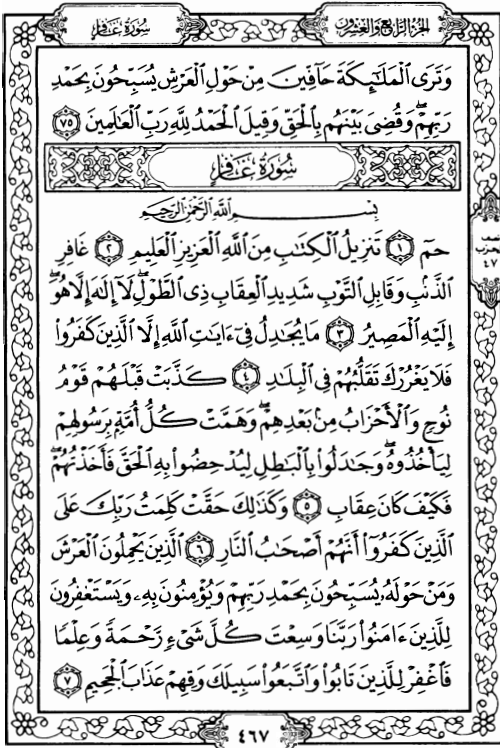 سُورَةُ غَافِرٍ
الجُزْءُ الرَّابِعُ وَالعِشْرُونَ
وَتَرَى ٱلْمَلَـٰٓئِكَةَ حَآفِّينَ مِنْ حَوْلِ ٱلْعَرْشِ يُسَبِّحُونَ بِحَمْدِ
رَبِّهِمْۖ وَقُضِىَ بَيْنَهُم بِٱلْحَقِّ وَقِيلَ ٱلْحَمْدُ لِلَّهِ رَبِّ ٱلْعَـٰلَمِينَ ٧٥
سُورَةُ غَافِرٍ
بِسْمِ ٱللَّهِ ٱلرَّحْمَـٰنِ ٱلرَّحِيمِ
حمٓ ١ تَنزِيلُ ٱلْكِتَـٰبِ مِنَ ٱللَّهِ ٱلْعَزِيزِ ٱلْعَلِيمِ ٢ غَافِرِ
ٱلذَّنۢبِ وَقَابِلِ ٱلتَّوْبِ شَدِيدِ ٱلْعِقَابِ ذِى ٱلطَّوْلِۖ لَآ إِلَـٰهَ إِلَّا هُوَۖ
إِلَيْهِ ٱلْمَصِيرُ ٣ مَا يُجَـٰدِلُ فِىٓ ءَايَـٰتِ ٱللَّهِ إِلَّا ٱلَّذِينَ كَفَرُوا۟
فَلَا يَغْرُرْكَ تَقَلُّبُهُمْ فِى ٱلْبِلَـٰدِ ٤ كَذَّبَتْ قَبْلَهُمْ قَوْمُ
نُوحٍ وَٱلْأَحْزَابُ مِنۢ بَعْدِهِمْۖ وَهَمَّتْ كُلُّ أُمَّةٍۭ بِرَسُولِهِمْ
لِيَأْخُذُوهُۖ وَجَـٰدَلُوا۟ بِٱلْبَـٰطِلِ لِيُدْحِضُوا۟ بِهِ ٱلْحَقَّ فَأَخَذْتُهُمْۖ
فَكَيْفَ كَانَ عِقَابِ ٥ وَكَذَٰلِكَ حَقَّتْ كَلِمَتُ رَبِّكَ عَلَى
ٱلَّذِينَ كَفَرُوٓا۟ أَنَّهُمْ أَصْحَـٰبُ ٱلنَّارِ ٦ ٱلَّذِينَ يَحْمِلُونَ ٱلْعَرْشَ
وَمَنْ حَوْلَهُۥ يُسَبِّحُونَ بِحَمْدِ رَبِّهِمْ وَيُؤْمِنُونَ بِهِۦ وَيَسْتَغْفِرُونَ
لِلَّذِينَ ءَامَنُوا۟ رَبَّنَا وَسِعْتَ كُلَّ شَىْءٍ رَّحْمَةً وَعِلْمًا
فَٱغْفِرْ لِلَّذِينَ تَابُوا۟ وَٱتَّبَعُوا۟ سَبِيلَكَ وَقِهِمْ عَذَابَ ٱلْجَحِيمِ ٧
نصف
الحزب
٤٧
٤٦٧